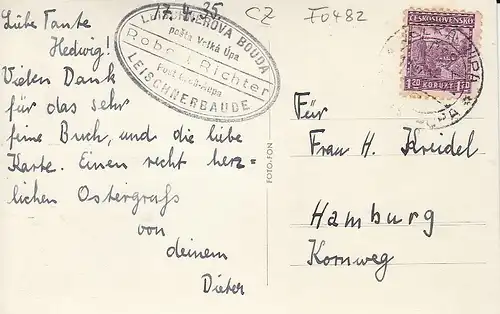 17.4.35.
CZ
F0482
Liebe Tante
Hedwig!
Vielen Dank
für das sehr
feine Buch, und die liebe
Karte. Einen recht herz=
lichen Ostergruß
von
deinem
Dieter
LEISCHNEROVA BOUDA
pošta Velká Úpa
Robert Richter
Post Groß-Aupa
LEISCHNERBAUDE
FOTO-FON
ČESKOSLOVENSKO
1.20 KORUNY 1.20
ÚPA
Für
Frau H. Kreidel
Hamburg
Kornweg